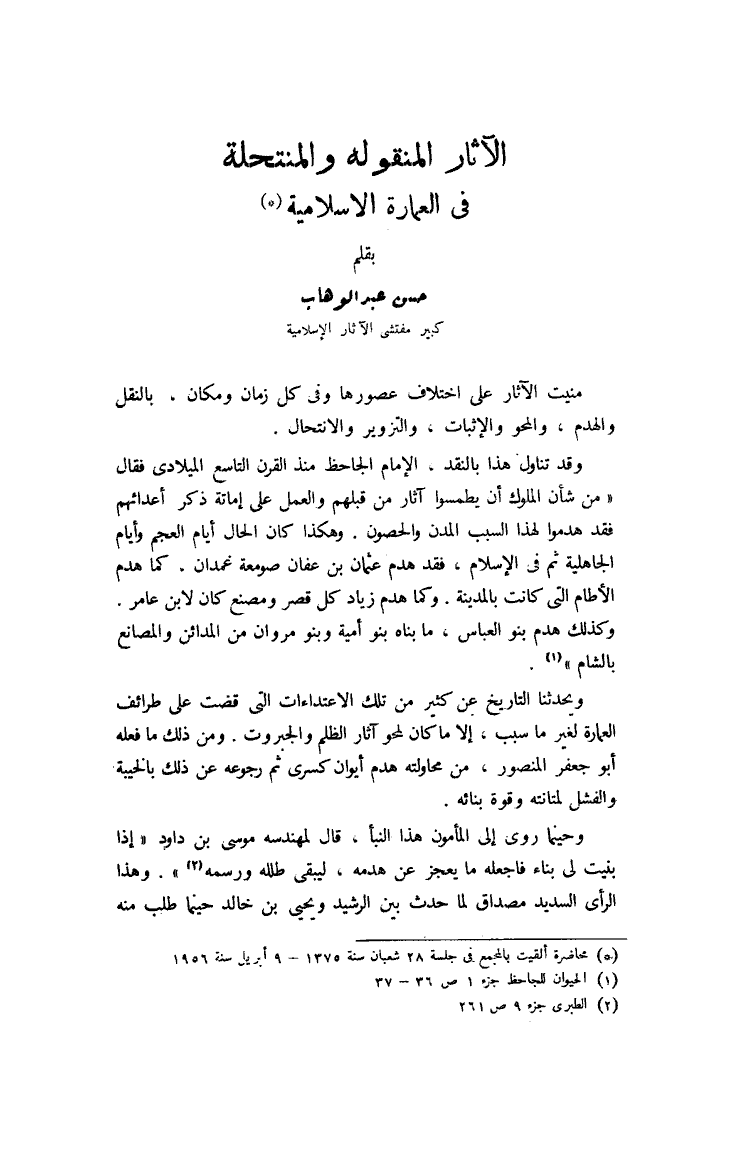 الآثار المنقوله والمنتحلة
فى العمارة الاسلامية (٥)
بقلم
حسن عبد الوهاب
كبير مفتشى الآثار الإسلامية
منيت الآثار على اختلاف عصورها وفى كل زمان ومكان ، بالنقل
والهدم ، والمحو والإثبات ، والتزوير والانتحال .
وقد تناول هذا بالنقد ، الإمام الجاحظ منذ القرن التاسع الميلادى فقال
« من شأن الملوك أن يطمسوا آثار من قبلهم والعمل على إماتة ذكر أعدائهم
فقد هدموا لهذا السبب المدن والحصون . وهكذا كان الحال أيام العجم وأيام
الجاهلية ثم فى الإسلام ، فقد هدم عثمان بن عفان صومعة غمدان . كما هدم
الأطام التى كانت بالمدينة . وكما هدم زياد كل قصر ومصنع كان لابن عامر .
وكذلك هدم بنو العباس ، ما بناه بنو أمية وبنو مروان من المدائن والمصانع
بالشام »(١) .
ويحدثنا التاريخ عن كثير من تلك الاعتداءات التى قضت على طرائف
العمارة لغير ما سبب ، إلا ما كان لمحو آثار الظلم والجبروت . ومن ذلك ما فعله
أبو جعفر المنصور ، من محاولته هدم أيوان كسرى ثم رجوعه عن ذلك بالخيبة
والفشل لمتانته وقوة بنائه .
وحينما روى إلى المأمون هذا النبأ ، قال لمهندسه موسى بن داود « إذا
بنيت لى بناء فاجعله ما يعجز عن هدمه ، ليبقى طلله ورسمه(٢) » . وهذا
الرأى السديد مصداق لما حدث بين الرشيد ويحيى بن خالد حينما طلب منه
(٥) محاضرة ألقيت بالمجمع فى جلسة ٢٨ شعبان سنة ١٣٧٥ – ٩ أبريل سنة ١٩٥٦
(١) الحيوان للجاحظ جزء ١ ص ٣٦ – ٣٧
(٢) الطبرى جزء ٩ ص ٢٦١